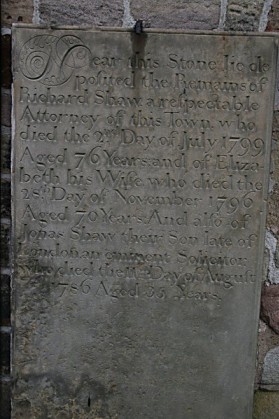 Near this Stone lie de
posited the Remains of
Richard Shaw a respectable
Attorney of this Town, who
died the 2d Day of July 1799
Aged 76 Years and of Eliza
beth his Wife who died the
28th Day of November 1796
Aged 70 Years And also of
Jonas Shaw their Son late of
London an eminent Solicitor
who died the Day of August
1786 Aged Years.